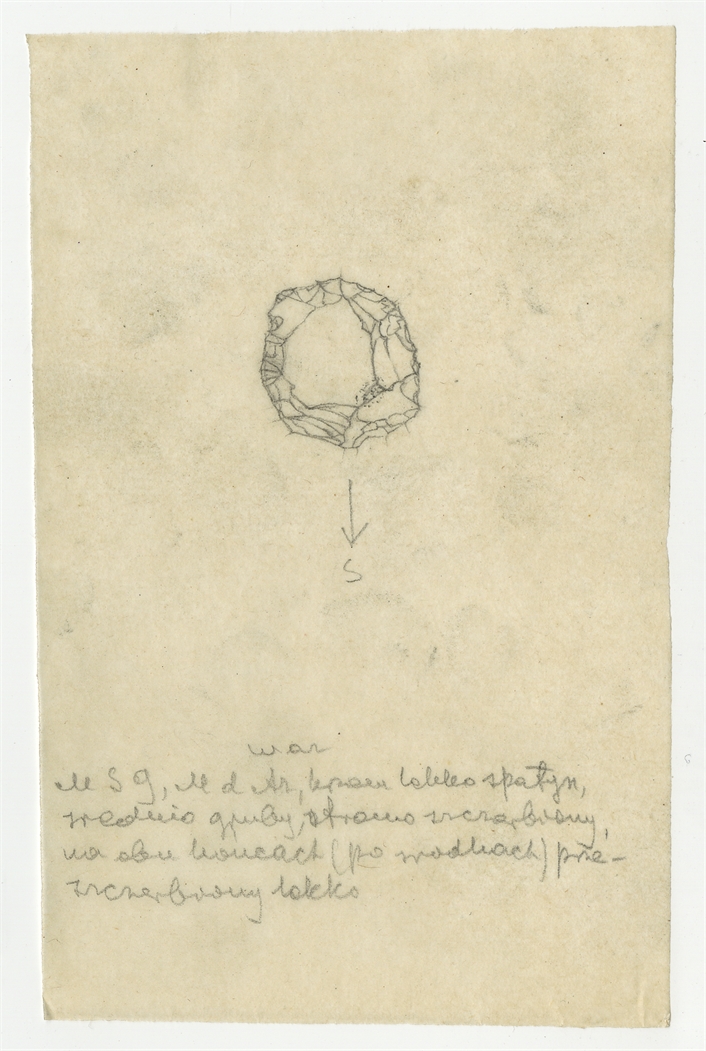 S
war
M S 9, M d Az, krzem lekko spatyn,
średnio gruby, stromo szczerbiony,
na obu końcach (po środkach) prze-
szczerbiony lekko